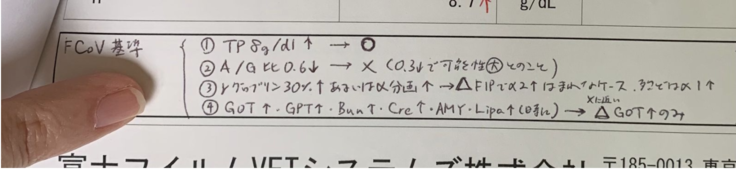 8.7↑ g/dL
FCoV 基準
① TP 8g/dl ↑ → ○
② A/G 比 0.6↓ → × (0.3↓で可能性大とのこと)
③ γグロブリン 30%↑ あるいはα分画↑ → △ FIPでα2↑はまれなケース.
④ GOT↑・GPT↑・Bun↑・Cre↑・AMY・Lipa↑ → △ GOT↑のみ
×に近い
富士フイルムVETシステムズ株式会社 〒185-0013 東京